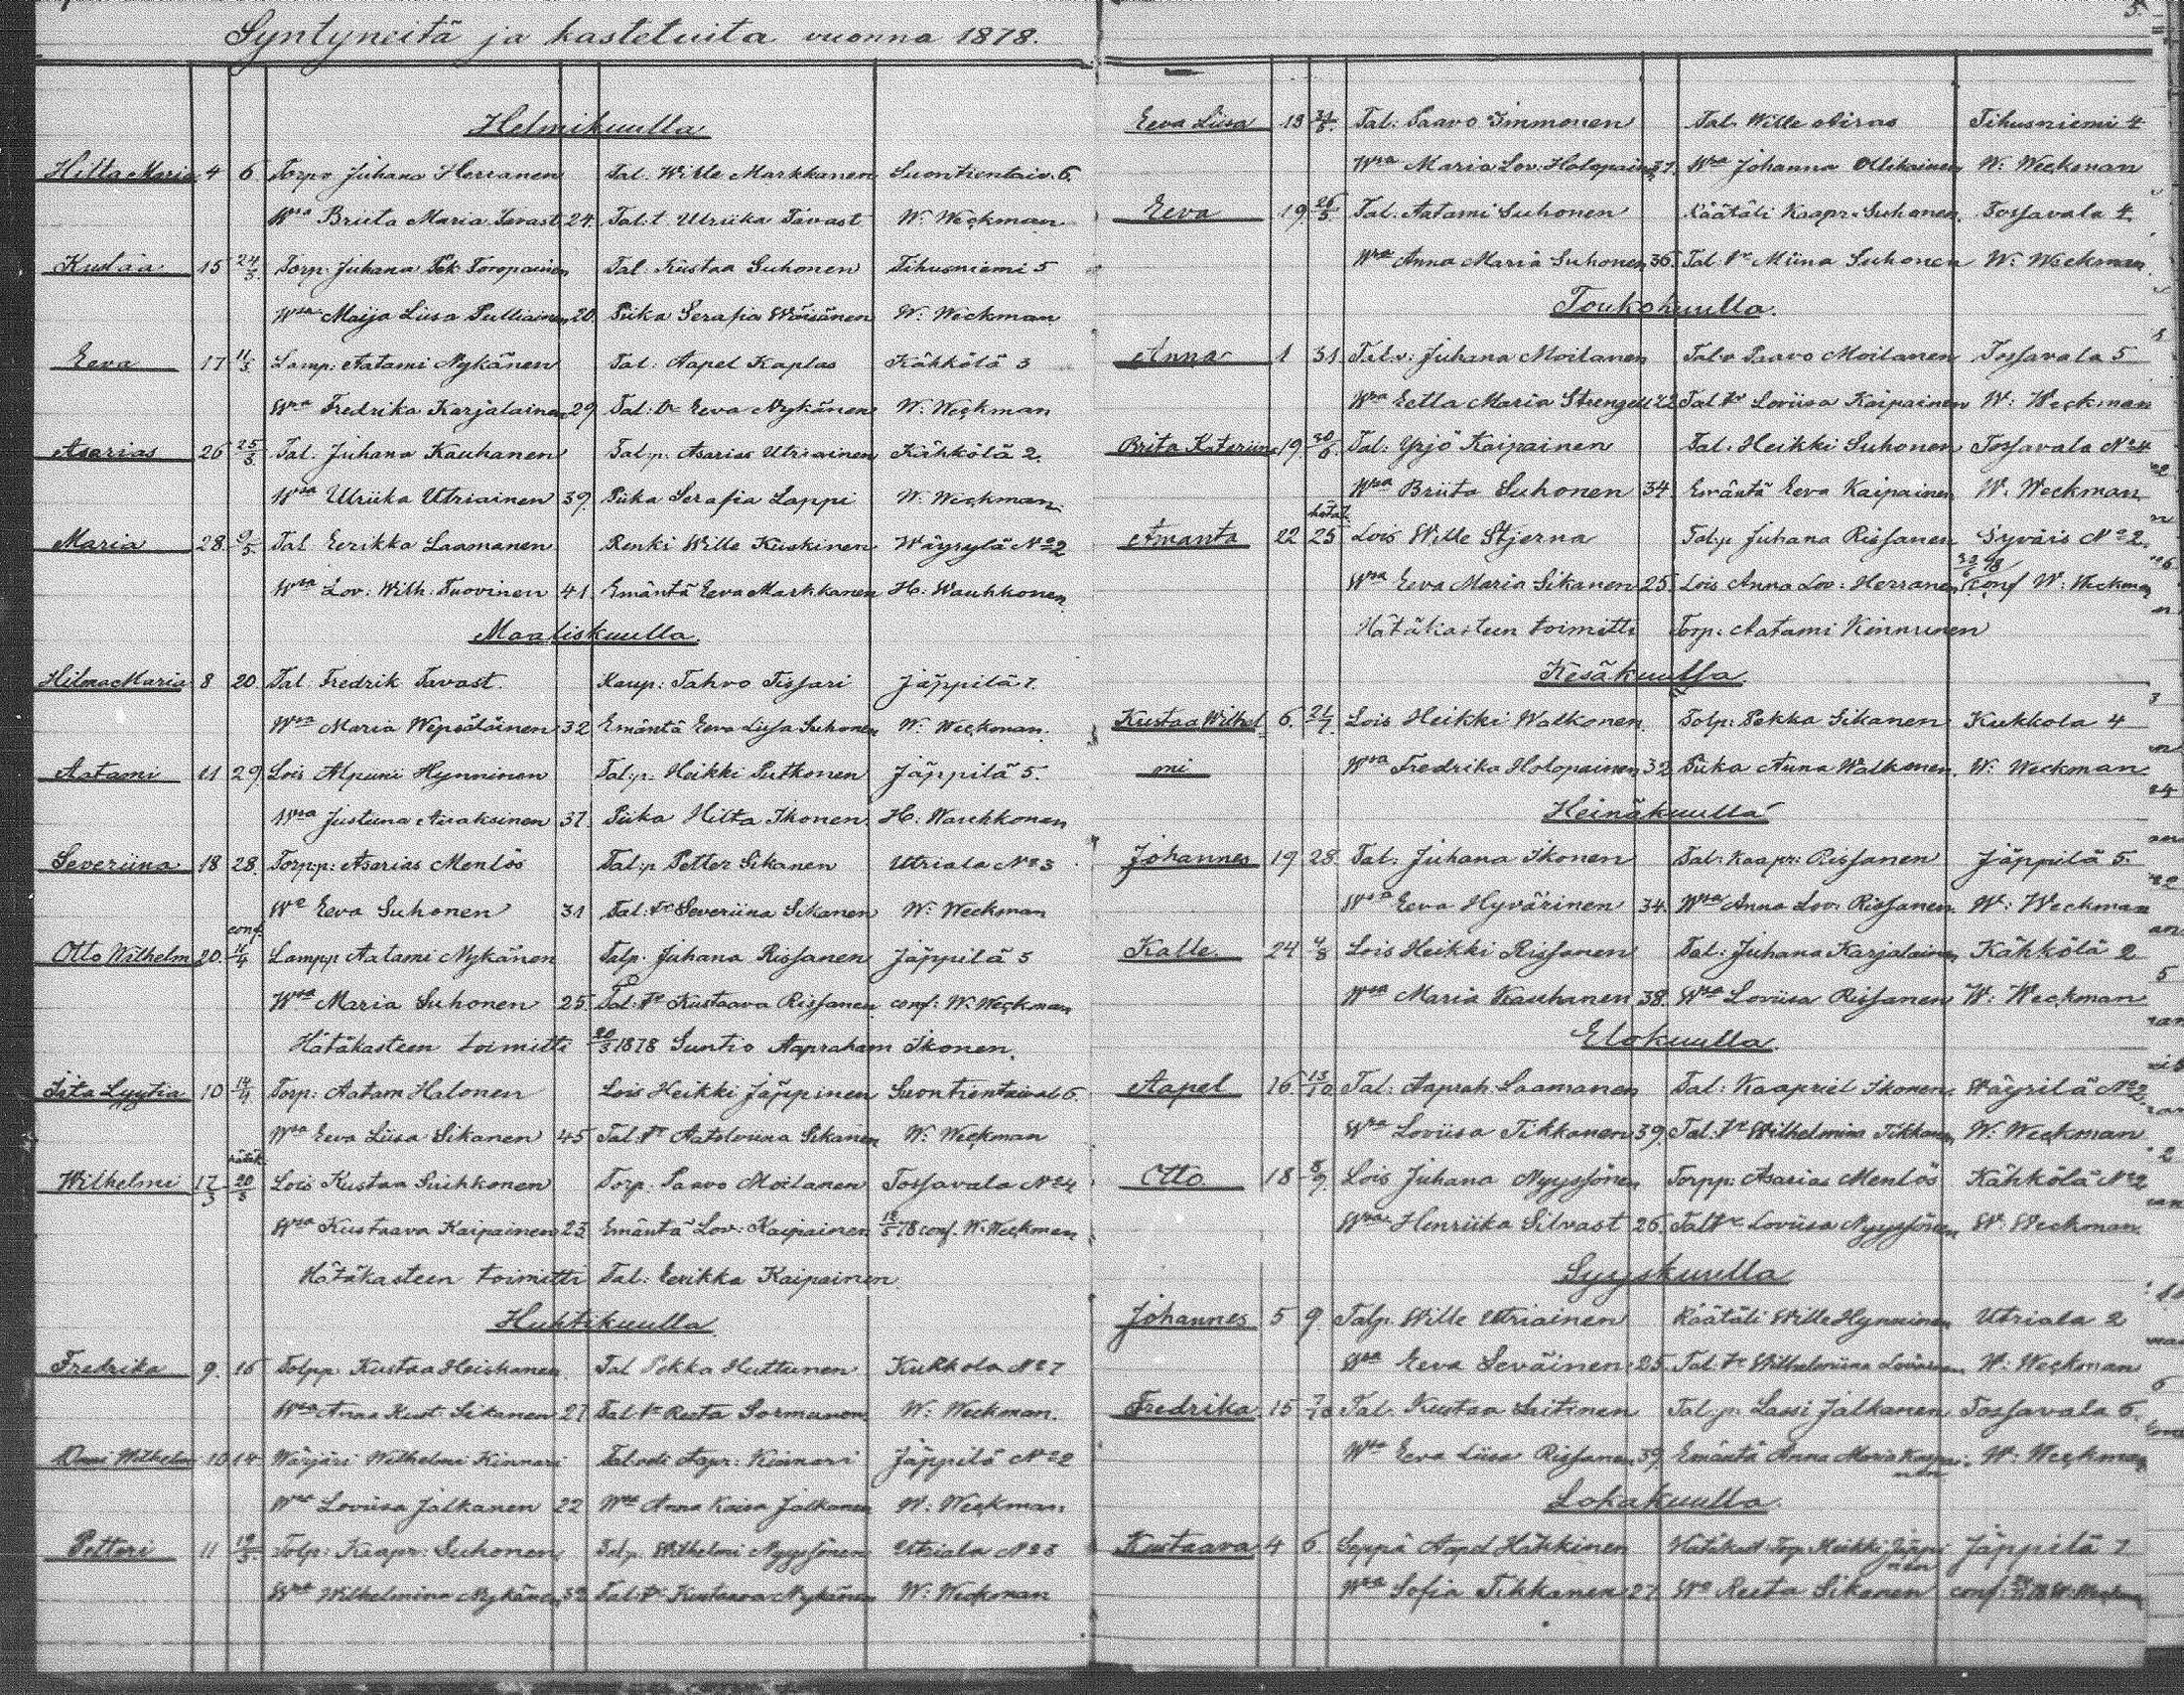 Syntyneitä ja kastetuita vuonna 1878.
Helmikuulla
Hilta Maria 4 6 Torp. Juhana Herranen Tal. Wille Markkanen Suontientaiv. 6.
Wmo Briita Maria Tavast 24. Tal. t. Ulriika Tavast W. Weckman
Kustaa 15 24/3. Torp. Juhana Pek. Toropainen Tal. Kustaa Suhonen Tihusniemi 5
Maija Liisa Pulliainen 20. Piika Serafia Wäisänen W. Weckman
Eeva 17 11/3 Lamp: Aatami Nykänen Tal: Aapel Kaplas Kähkölä 3
Fredrika Karjalainen 29 Tal: Eeva Nykänen W. Weckman
Asarias 26 25/3 Tal. Juhana Kauhanen Tal:p. Asarias Utriainen Kähkölä 2.
Ulriika Utriainen 39. Piika Serafia Lappi W. Weckman
Maria 28. 9/5. Tal Eerikka Laamanen Renki Wille Kuskinen Wäyrylä No 2
Lov: Wilh. Tuovinen 41. Emäntä Eeva Markkanen H. Wauhkonen
Maaliskuulla.
Hilma Maria 8 20. Tal. Fredrik Tavast. Kaup: Tahvo Tissari Jäppilä 7.
Maria Wepsäläinen 32 Emäntä Eeva Liisa Suhonen W. Weckman.
Aatami 11 29. Lois Hynninen Tal:p. Heikki Putkonen Jäppilä 5.
Justiina Airaksinen 37. Piika Hilta Ikonen H. Wauhkonen
Severiina 18 28. Torp:p: Asarias Menlös Tal:p Petter Sikanen Utriala No 3
Eeva Suhonen 31 Tal: Severiina Sikanen W. Weckman
conf.
Otto Wilhelm 20. 16/4 Lampp Aatami Nykänen Talp. Juhana Rissanen Jäppilä 5
Maria Suhonen 25. Tal: Kustaava Rissanen conf: W. Weckman
Hätäkasteen toimitti 20/3 1878 Suntio Aapraham Ikonen.
Iita Lyytia 10 14/4 Torp: Aatam Halonen Lois Heikki Jäppinen Suontientaival 6.
Eeva Liisa Sikanen 45 Tal: Sikanen W. Weckman
hätäk.
Wilhelmi 17/3 20/3 Lois Kustaa Suihkonen Torp. Paavo Moilanen Tossavala No 4
Kustaava Kaipainen 23 Emäntä Lov: Kaipainen 78 conf. W. Weckman
Hätäkasteen toimitti Tal: Eerikka Kaipainen
Huhtikuulla.
Fredrika 9. 16 Tolpp. Kustaa Heiskanen Tal Pekka Huttunen Kukkola No 7
Anna Kust. Sikanen 27 Tal: Reeta Sormunen W: Weckman.
Wilhelm 10 14 Wärjäri Wilhelmi Kinnari Apr: Kinnari Jäppilä No 2
Loviisa Jalkanen 22 Anna Kaisa Jalkanen W. Weckman.
Petteri 11 19/5. Tolp: Kaapr: Suhonen Tal:p. Wilhelmi Nyyssönen Utriala No 3
Wilhelmina Nykänen 32 Tal: Kustaava Nykänen W. Weckman
5.
Eeva Liisa 13 Tal: Paavo Immonen Tal. Wille Airas Tihusniemi 4
Maria Lov: Holopainen 37. Johanna Ollikainen W. Weckman
Eeva 19. 26/5 Tal: Aatami Suhonen Räätäli Kaapr: Suhonen. Tossavala 4
Anna Maria Suhonen 36. Tal. Miina Suhonen W: Weckman.
Toukokuulla.
Anna 1 31 Tal.v: Juhana Moilanen Tal:v Paavo Moilanen Tossavala 5
Eetla Maria Strengell 42 Tal. Loviisa Kaipainen W: Weckman
Brita Katariina 19. 30/6. Tal: Yrjö Kaipainen Tal. Heikki Suhonen Tossavala No 4
Briita Suhonen 34 Emäntä Eeva Kaipainen W. Weckman
hätäk.
Amanta 22 25 Lois Wille Stjerna Tal:p Juhana Rissanen Syväis No 2.
Eeva Maria Sikanen 25. Lois Anna Lov: Herranen 30/6 78 conf W: Weckman
Hätäkasteen toimitti Torp: Aatami Kinnunen
Kesäkuulla
Kustaa Wilhel 6. 21/7. Lois Heikki Walkonen. Tolp: Pekka Sikanen Kukkola 4
mi Fredrika Holopainen 32 Piika Anna Walkonen. W. Weckman
Heinäkuulla
Johannes 19 28. Tal: Juhana Ikonen Tal: Kaapr: Rissanen Jäppilä 5.
Eeva Hyvärinen 34. Anna Lov: Rissanen. W: Weckman
Kalle. 24 4/8 Lois Heikki Rissanen Tal: Juhana Karjalainen Kähkölä 2
Maria Kauhanen 38. Loviisa Rissanen W: Weckman
Elokuulla.
Aapel 16. 13/10 Tal: Aaprah: Laamanen Tal: Kaapriel Ikonen. Wäyrilä No 2.
Loviisa Tikkanen 39. Tal: Wilhelmina Tikkanen W. Weckman
Otto 18 8/9. Lois Juhana Nyyssönen Torpp: Asarias Menlös Kähkölä No 2
Henriika Silvast 26. Loviisa Nyyssönen W. Weckman.
Syyskuulla
Johannes 5 9. Talp. Wille Utriainen Räätäli Wille Hynninen Utriala 2
Eeva Seväinen 25. Tal: Wilhelmiina W: Weckman
Fredrika 15 7/10 Tal. Kustaa Tal:p. Lassi Jalkanen Tossavala 6.
Eeva Liisa Rissanen 39. Emäntä Anna Maria W: Weckman
Lokakuulla.
Kustaava 4 6. Seppä Aapel Häkkinen Hätäkast. Torp. Heikki Jäppinen Jäppilä 7
Sofia Tikkanen 27. Reeta Sikanen conf: W: Weckman